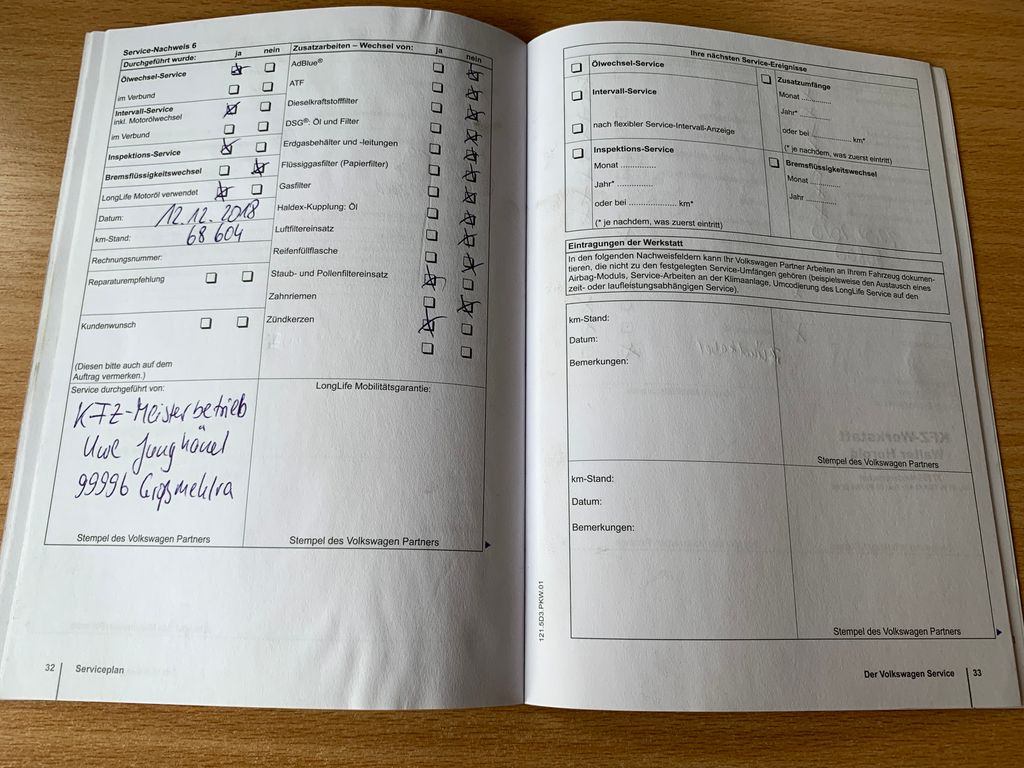 Service-Nachweis 6
Durchgeführt wurde: ja nein
Ölwechsel-Service
im Verbund
Intervall-Service
inkl. Motorölwechsel
im Verbund
Inspektions-Service
Bremsflüssigkeitswechsel
LongLife Motoröl verwendet
Datum: 12.12.2018
km-Stand: 68 604
Rechnungsnummer:
Reparaturempfehlung
Kundenwunsch
(Diesen bitte auch auf dem
Auftrag vermerken.)
Zusatzarbeiten – Wechsel von: ja nein
AdBlue®
ATF
Dieselkraftstofffilter
DSG®: Öl und Filter
Erdgasbehälter und -leitungen
Flüssiggasfilter (Papierfilter)
Gasfilter
Haldex-Kupplung: Öl
Luftfiltereinsatz
Reifenfüllflasche
Staub- und Pollenfiltereinsatz
Zahnriemen
Zündkerzen
Service durchgeführt von:
KFZ-Meisterbetrieb
Uwe Junghänel
99996 Großmehlra
Stempel des Volkswagen Partners
LongLife Mobilitätsgarantie:
Stempel des Volkswagen Partners
32 Serviceplan
Ihre nächsten Service-Ereignisse
Ölwechsel-Service
Intervall-Service
nach flexibler Service-Intervall-Anzeige
Inspektions-Service
Monat ...............
Jahr* ...............
oder bei ............... km*
(* je nachdem, was zuerst eintritt)
Zusatzumfänge
Monat ............
Jahr* ............
oder bei ............ km*
(* je nachdem, was zuerst eintritt)
Bremsflüssigkeitswechsel
Monat ............
Jahr ............
Eintragungen der Werkstatt
In den folgenden Nachweisfeldern kann Ihr Volkswagen Partner Arbeiten an Ihrem Fahrzeug dokumen-
tieren, die nicht zu den festgelegten Service-Umfängen gehören (beispielsweise den Austausch eines
Airbag-Moduls, Service-Arbeiten an der Klimaanlage, Umcodierung des LongLife Service auf den
zeit- oder laufleistungsabhängigen Service).
km-Stand:
Datum:
Bemerkungen:
Stempel des Volkswagen Partners
km-Stand:
Datum:
Bemerkungen:
Stempel des Volkswagen Partners
121.5D3.PKW.01
Der Volkswagen Service 33